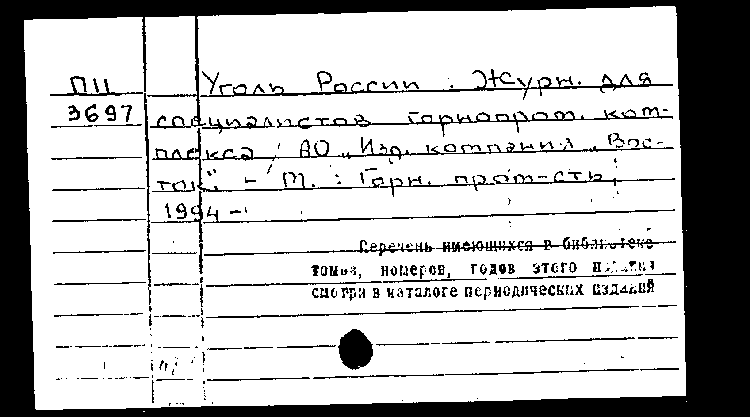 ПЦ Уголь России : Журн. для
3697 специалистов горнопром. ком-
плекса / АО „Изд. компания „Вос-
ток". – М. : Горн. пром-сть,
1994 –
Перечень имеющихся в библиотеке
томов, номеров, годов этого издания
смотри в каталоге периодических изданий